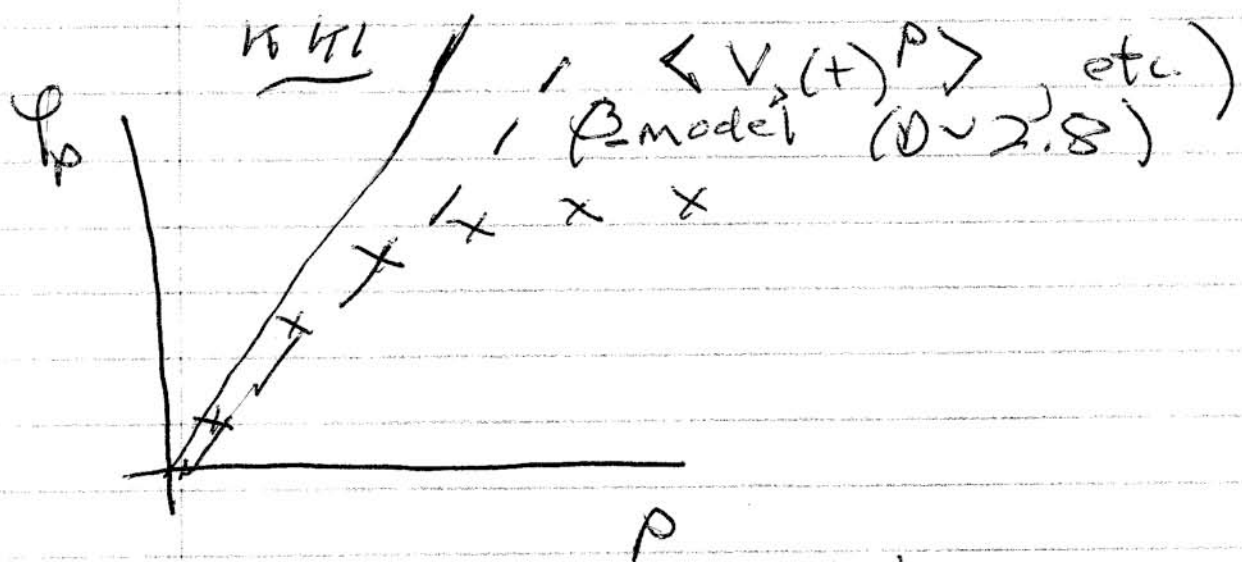 < V(t)^p >, etc.)
β-model (D ~ 2.8)
ζ_p
p